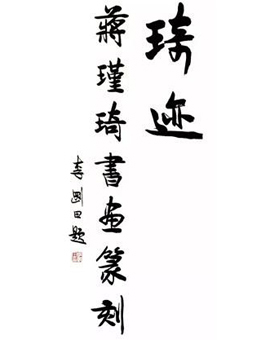 琦迹
蔣瑾琦書画篆刻
李剛田題